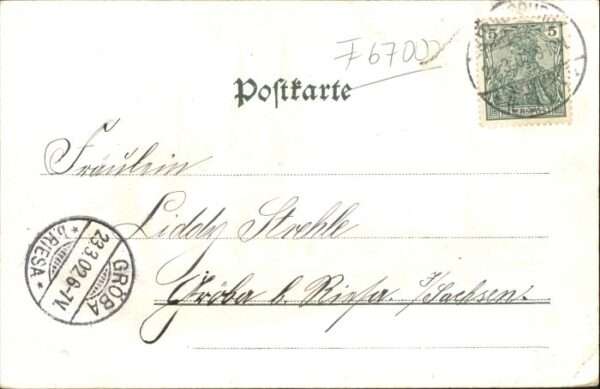 F 67000
5 5
Postkarte
Fräulein
Liddy Strehle
Gröba b. Riesa. i/Sachsen.
GRÖBA
23.3.02.6-7V.
* b. RIESA *